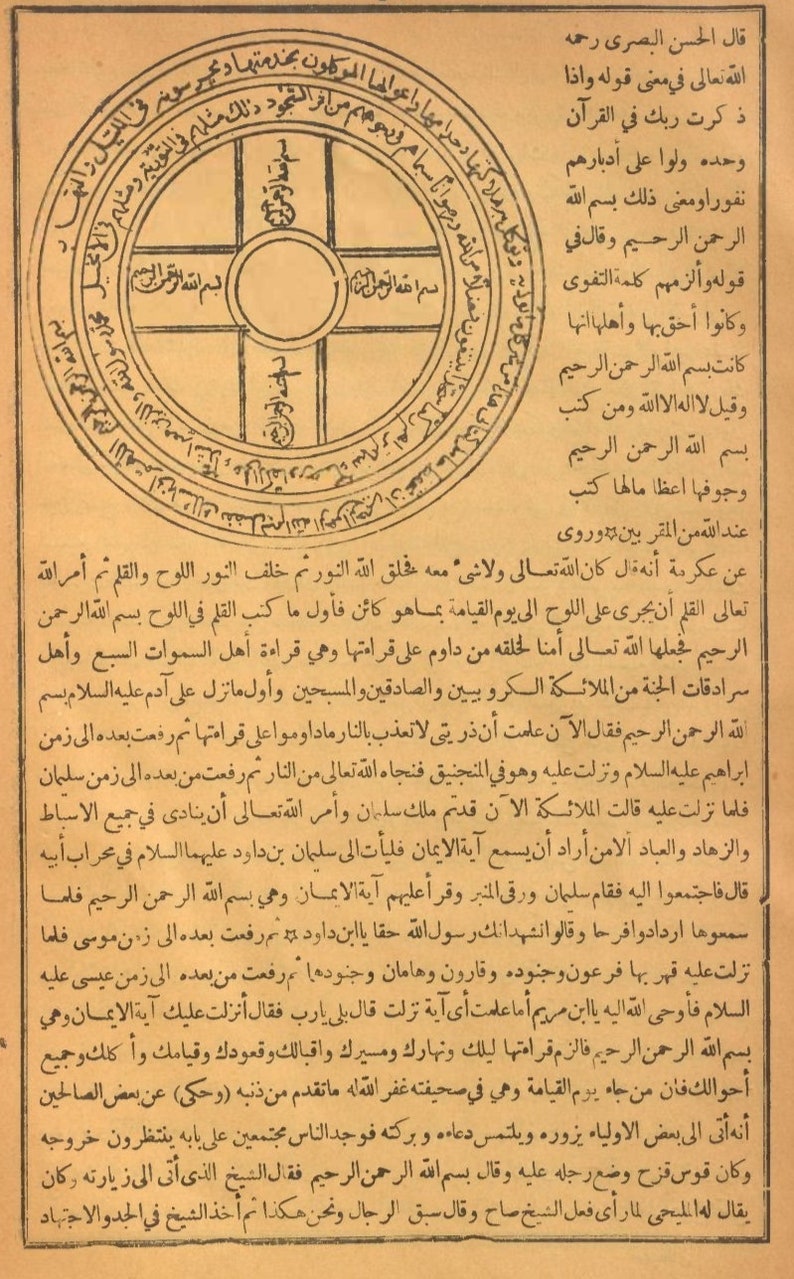 قال الحسن البصرى رحمه
الله تعالى فى معنى قوله واذا
ذكرت ربك في القرآن
وحده ولوا على أدبارهم
نفورا ومعنى ذلك بسم الله
الرحمن الرحيم وقال فى
قوله وألزمهم كلمة التقوى
وكانوا أحق بها وأهلها انها
كانت بسم الله الرحمن الرحيم
وقيل لا اله الا الله ومن كتب
بسم الله الرحمن الرحيم
وجوفها اعظاما لها كتب
عند الله من المقربين ۞ وروى
عن عكرمة أنه قال كان الله تعالى ولا شىء معه فخلق الله النور ثم خلف النور اللوح والقلم ثم أمر الله
تعالى القلم أن يجرى على اللوح الى يوم القيامة بما هو كائن فأول ما كتب القلم فى اللوح بسم الله الرحمن
الرحيم فجعلها الله تعالى أمنا لخلقه من داوم على قراءتها وهي قراءة أهل السموات السبع وأهل
سرادقات الجنة من الملائكة الكروبيين والصادقين والمسبحين وأول ما نزل على آدم عليه السلام بسم
الله الرحمن الرحيم فقال الآن علمت أن ذريتى لا تعذب بالنار ما داوموا على قراءتها ثم رفعت بعده الى زمن
ابراهيم عليه السلام ونزلت عليه وهو فى المنجنيق فنجاه الله تعالى من النار ثم رفعت من بعده الى زمن سليمان
فلما نزلت عليه قالت الملائكة الآن قد تم ملك سليمان وأمر الله تعالى أن ينادى فى جميع الاسباط
والزهاد والعباد ألا من أراد أن يسمع آية الايمان فليأت الى سليمان بن داود عليهما السلام فى محراب أبيه
قال فاجتمعوا اليه فقام سليمان ورقى المنبر وقرأ عليهم آية الايمان وهي بسم الله الرحمن الرحيم فلما
سمعوها ازدادوا فرحا وقالوا نشهد انك رسول الله حقا يا ابن داود ۞ ثم رفعت بعده الى زمن موسى فلما
نزلت عليه قهر بها فرعون وجنوده وقارون وهامان وجنودهما ثم رفعت من بعده الى زمن عيسى عليه
السلام فأوحى الله اليه يا ابن مريم أما علمت أى آية نزلت قال بلى يارب فقال أنزلت عليك آية الايمان وهي
بسم الله الرحمن الرحيم فالزم قراءتها ليلك ونهارك ومسيرك واقبالك وقعودك وقيامك وأكلك وجميع
أحوالك فان من جاء يوم القيامة وهي فى صحيفته غفر الله له ما تقدم من ذنبه (وحكى) عن بعض الصالحين
أنه أتى الى بعض الاولياء يزوره ويلتمس دعاءه وبركته فوجد الناس مجتمعين على بابه ينتظرون خروجه
وكان قوس قزح وضع رجله عليه وقال بسم الله الرحمن الرحيم فقال الشيخ الذى أتى الى زيارته وكان
يقال له المليحى لما رأى فعل الشيخ صاح وقال سبق الرجال ونحن هكذا ثم أخذ الشيخ في الجد والاجتهاد
بسم الله الرحمن الرحيم
بسم الله الرحمن الرحيم
بسم الله الرحمن الرحيم
بسم الله الرحمن الرحيم